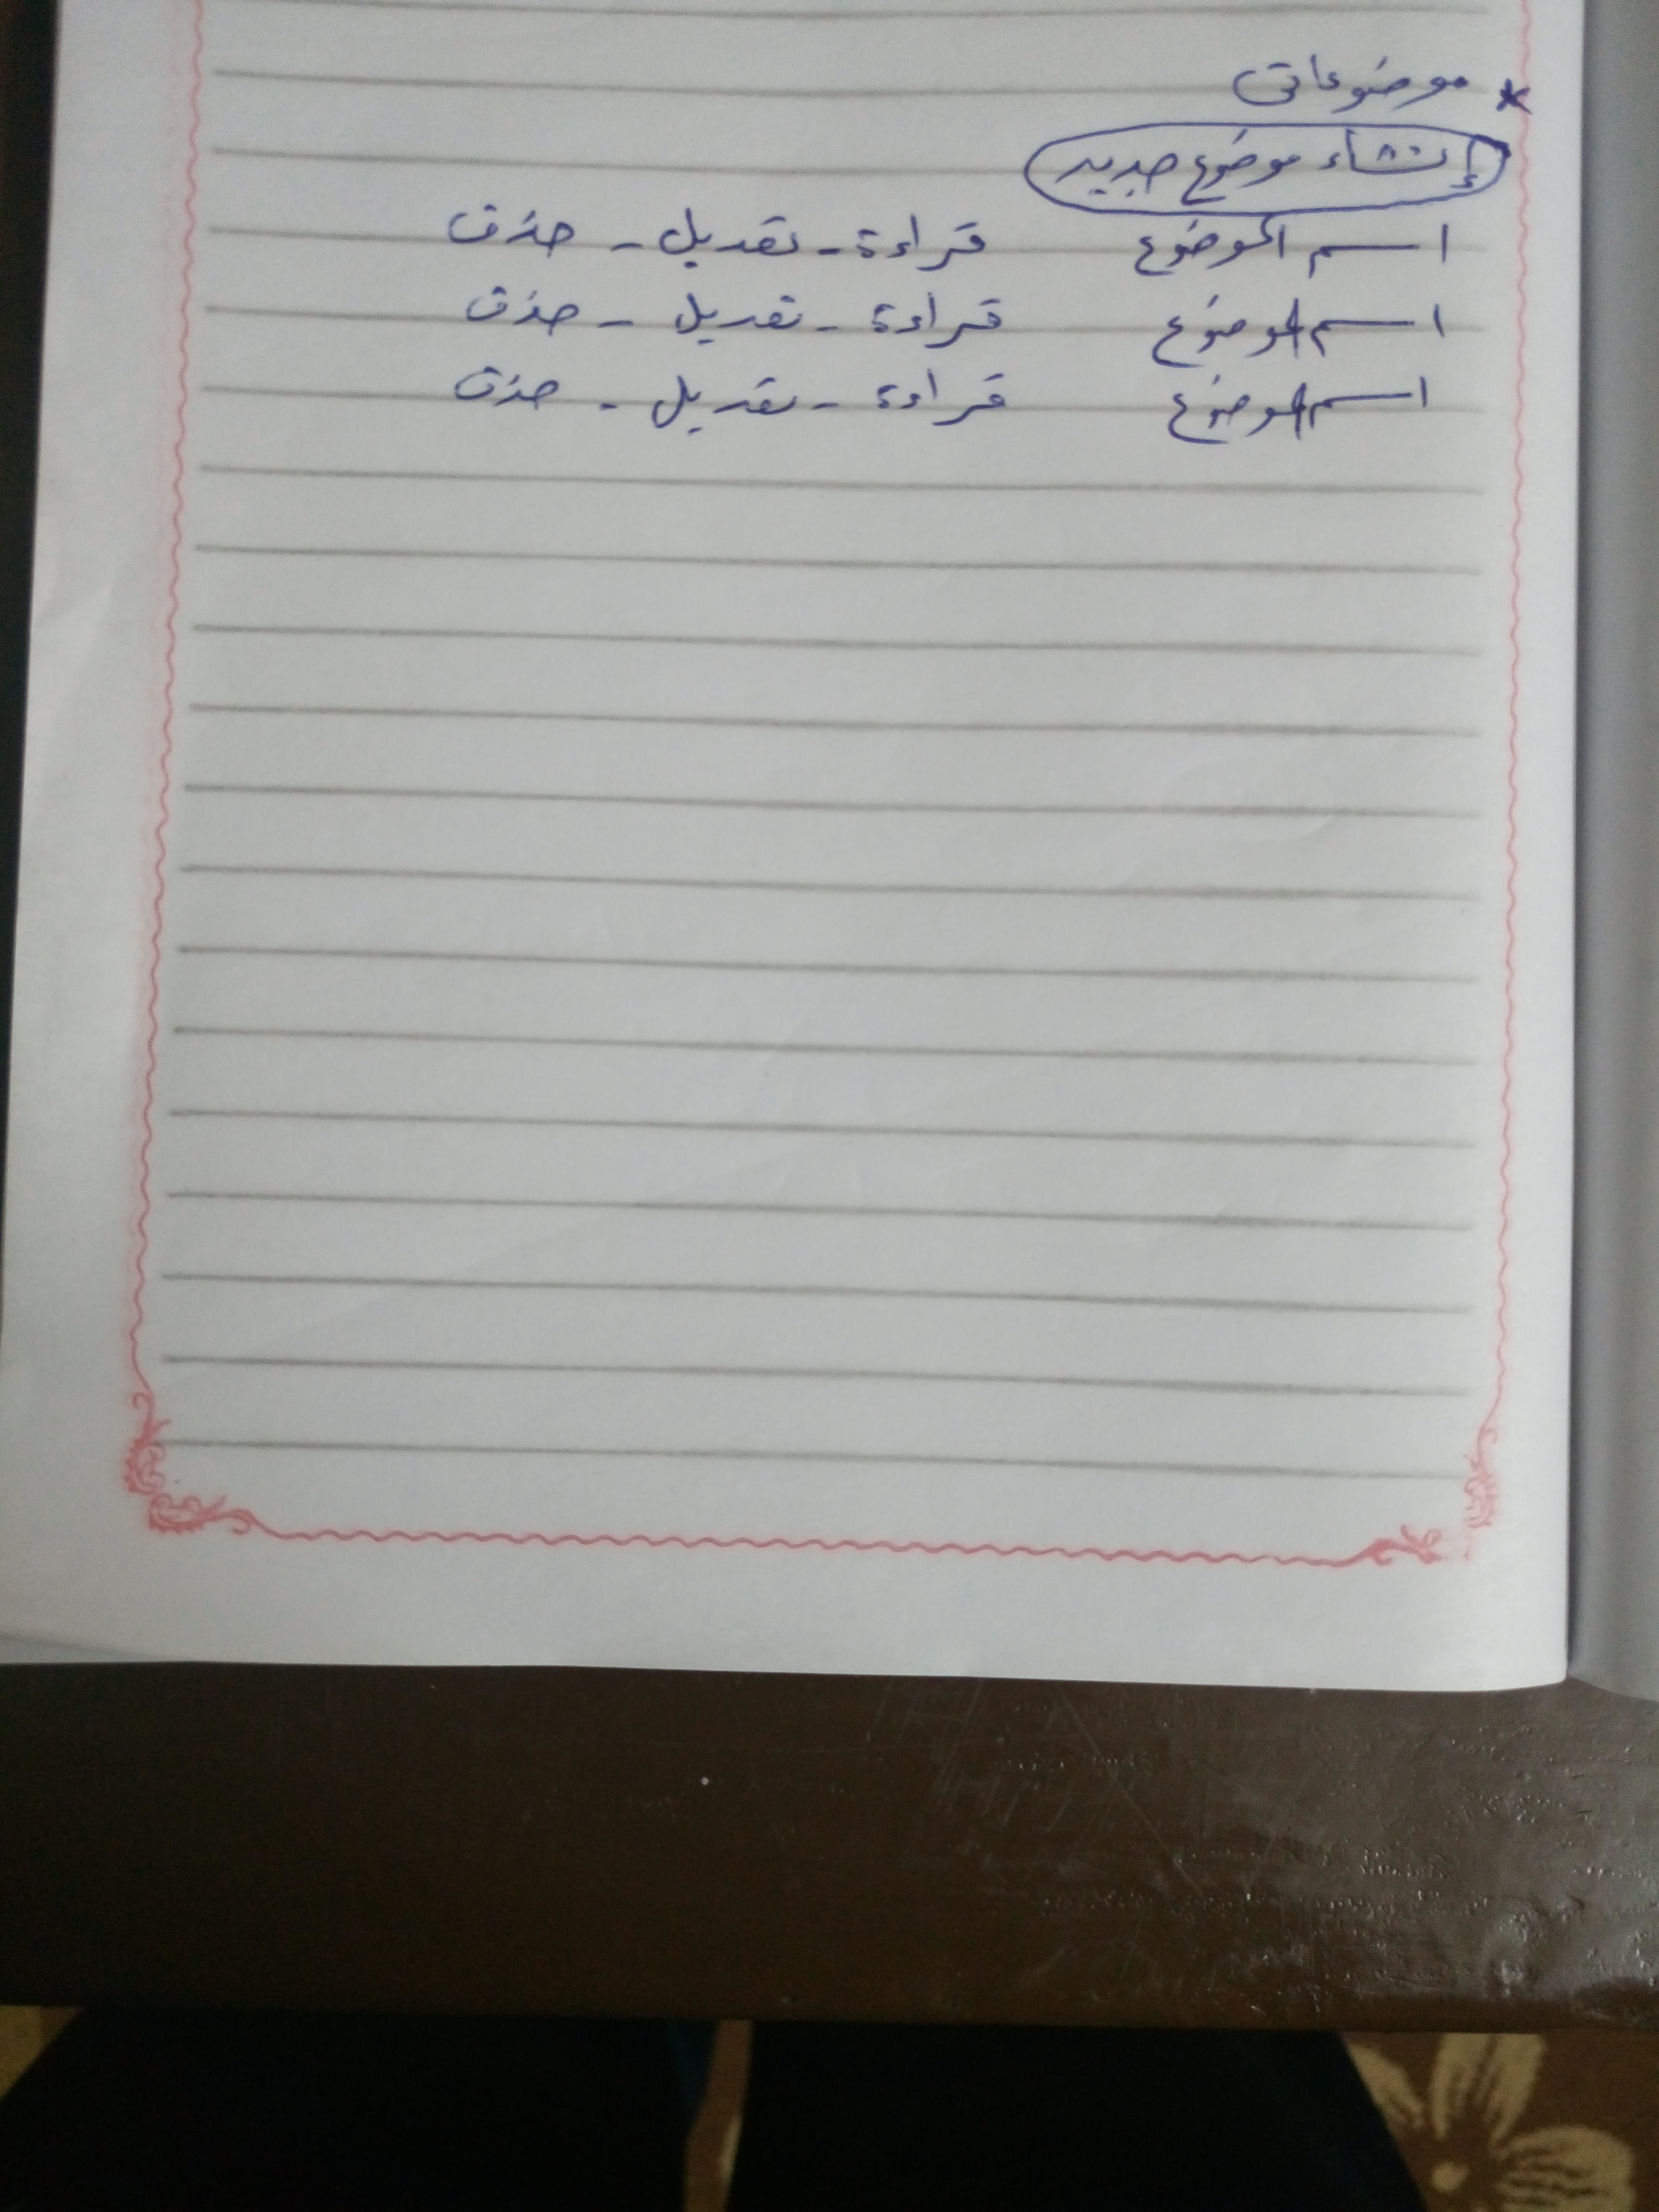 * موضوعاتى
إنشاء موضوع جديد
اسم الموضوع قراءة - تعديل - حذف
اسم الموضوع قراءة - تعديل - حذف
اسم الموضوع قراءة - تعديل - حذف